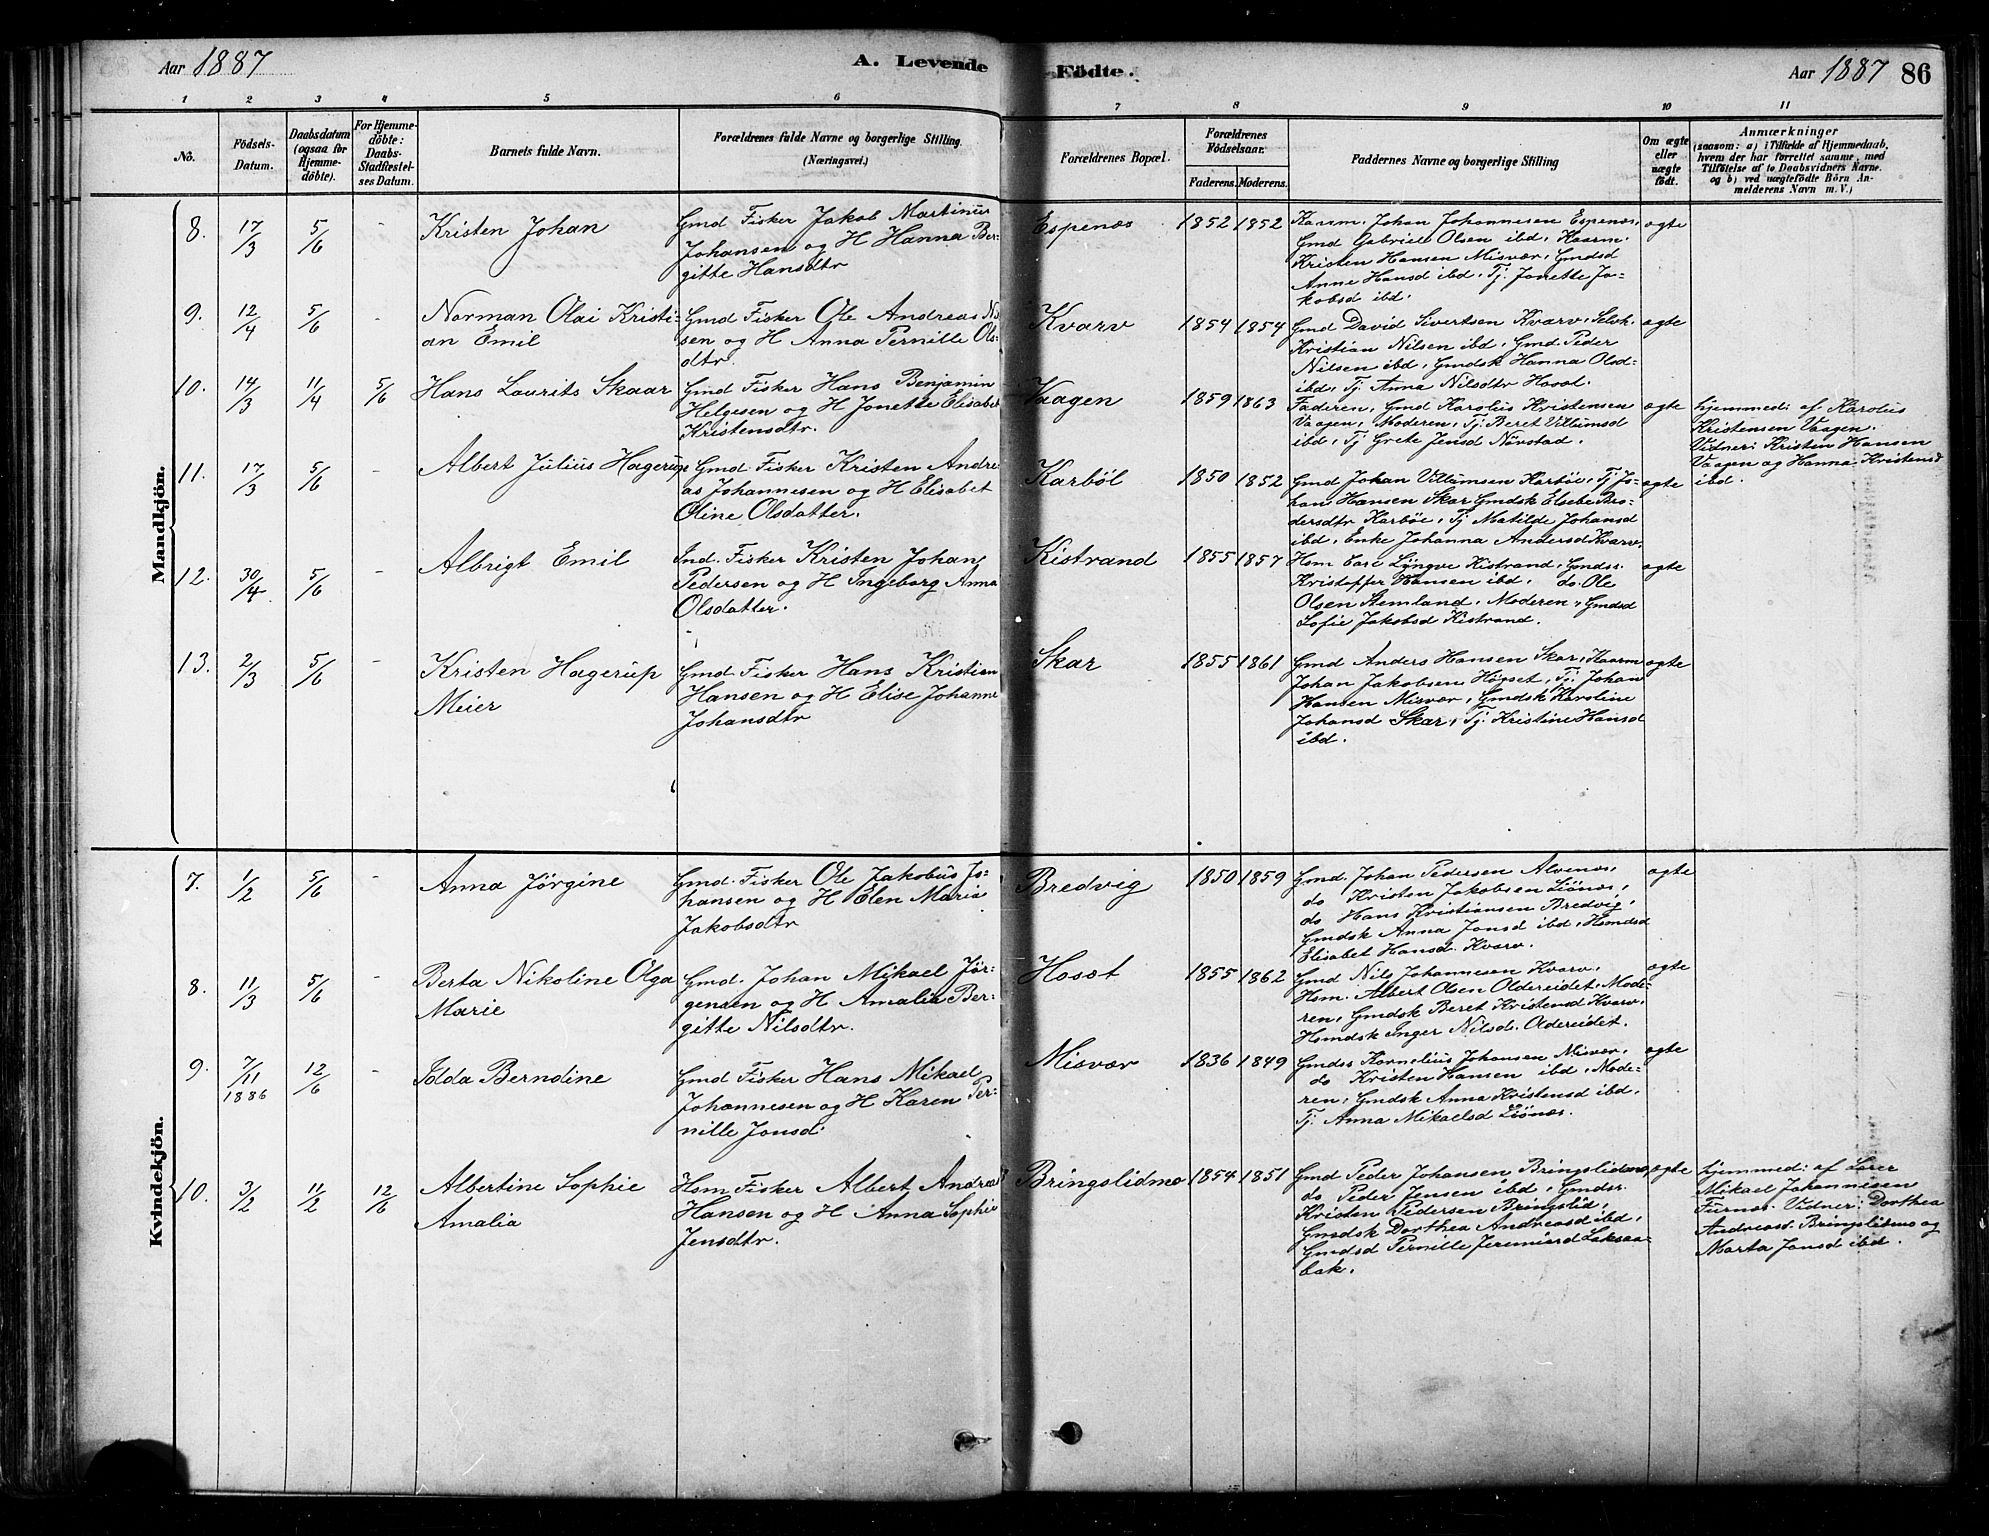 Aar 1887
A. Levende
Födte.
Aar 1887 86
1 2 3 4 5 6 7 8 9 10 11
No.
Födsels-
Datum.
Daabsdatum
(ogsaa for
Hjemme-
döbte).
For Hjemme-
döbte:
Daabs-
Stadfæstel-
ses Datum.
Barnets fulde Navn.
Forældrenes fulde Navne og borgerlige Stilling.
(Næringsvei.)
Forældrenes Bopæl.
Forældrenes
Födselsaar.
Faderens. Moderens.
Faddernes Navne og borgerlige Stilling
Om ægte
eller
uægte
födt.
Anmærkninger
(saasom: a) i Tilfælde af Hjemmedaab,
hvem der har forrettet samme, med
Tilföielse af to Daabsvidners Navne.
og b) ved uægtefödte Börn An-
melderens Navn m. V.)
Mandkjön.
8. 17/3 5/6
Kristen Johan
Gmd Fisker Jakob Martinus
Johansen og H Hanna Ber-
gitte Hansdtr
Espenæs 1852 1852
Kaarm. Johan Johannesen Espenæs,
Gmd Gabriel Olsen ibd, Kaarm.
Kristen Hansen Misvær, Gmdsd
Anne Hansd ibd, Tj. Jonette Ja-
kobsd ibd.
ægte
9. 12/4 5/6 -
Norman Olai Kristi-
an Emil
Gmd Fisker Ole Andreas
sen og H Anna Pernille Ols-
dtr.
Kvarv 1854 1854
Gmd David Sivertsen Kvarv, Selvk.
Kristian Nilsen ibd, Gmd. Peder
Nilsen ibd, Gmdsk Hanna Olsd-
ibd, Tj. Anna Nilsdtr Hosæt.
ægte
10. 14/3 11/4 5/6
Hans Laurits Skaar
Gmd Fisker Hans Benjamin
Helgesen og H Jonette Elisabet
Kristensdtr.
Vaagen 1859 1863
Faderen, Gmd Karolus Kristensen
Vaagen, Moderen, Tj. Beret Villumsd
ibd, Tj Grete Jensd Nönstad.
ægte
hjemmed: af Karolus
Kristensen Vaagen.
Vidner: Kristen Hansen
Vaagen og Hanna Kristensd
ibd.
11. 17/3 5/6 -
Albert Julius Hagerup
Gmd. Fisker Kristen Andre-
as Johannesen og H Elisabet
Oline Olsdatter.
Karböl 1850 1852
Gmd Johan Villumsen Karböl, Tj Jo-
han Hansen Skar Gmdsk Elsebe Pe-
dersdtr Karböl, Tj Matilde Johansd
ibd, Enke Johanna Andersd Kvarv.
ægte
12. 30/4 5/6 -
Albrigt Emil
Ind. Fisker Kristen Johan
Pedersen og H Ingeborg Anna
Olsdatter.
Kistrand 1855 1857
Hsm Carl Lyngve Kistrand, Gmdss.
Kristoffer Hansen ibd, do. Ole
Olsen Stemland, Moderen, Gmdsd
Sofie Jakobsd Kistrand.
ægte
13. 2/3 5/6 -
Kristen Hagerup
Meier
Gmd Fisker Hans Kristian
Hansen og H Elise Johanne
Johansdtr
Skar 1855 1861
Gmd Anders Hansen Skar, Kaarm
Johan Jakobsen Högset, Tj. Johan
Hansen Misvær, Gmdsk Karoline
Johansd Skar, Tj. Kristine Hansd
ibd.
ægte
Kvindekjön.
7. 1/2 5/6 -
Anna Jörgine
Gmd. Fisker Ole Jakobus Jo-
hansen og H Elen Maria
Jakobsdtr
Bredvig 1850 1859
Gmd. Johan Pedersen Alvenes,
do Kristen Jakobsen Liönæs,
do Hans Kristiansen Bredvig,
Gmdsk Anna Jonsd ibd, Hsmdsd
Elisabet Hansd. Kvarv.
ægte
8. 11/3 5/6 -
Berta Nikoline Olga
Marie
Gmd. Johan Mikael Jör-
gensen og H Amalia Ber-
gitte Nilsdtr.
Hosæt 1855 1862
Gmd Nils Johannesen Kvarv,
Hsm. Albert Olsen Oldereidet, Mode-
ren, Gmdsk Beret Kristensd Kvarv,
Hsmdsk Inger Nilsd. Oldereidet.
ægte
9. 7/11 1886 12/6 -
Idda Berndine
Gmd Fisker Hans Mikael
Johannesen og H Karen Per-
nille Jonsd:
Misvær 1836 1849
Gmdss Kornelius Johansen Misvær,
do Kristen Hansen ibd, Mode-
ren, Gmdsk Anna Kristensd ibd,
Tj. Anna Mikaelsd Liönæs.
ægte
10. 3/2 11/2 12/6
Albertine Sophie
Amalia
Hsm Fisker Albert Andreas
Hansen og H Anna Sophie
Jensdtr.
Bringslidmo 1854 1851
Gmd Peder Johansen Bringslidmo,
do Peder Jensen ibd, Gmdss.
Kristen Pedersen Bringslid,
Gmdsk Dorthea Andreasd ibd,
Gmdsd Pernille Jeremiasd Laksaa-
bak.
ægte
hjemmed: af Lærer
Mikael Johannesen
Furnes. Vidner: Dorthea
Andreasd. Bringslidmo og
Marta Jonsd ibd.